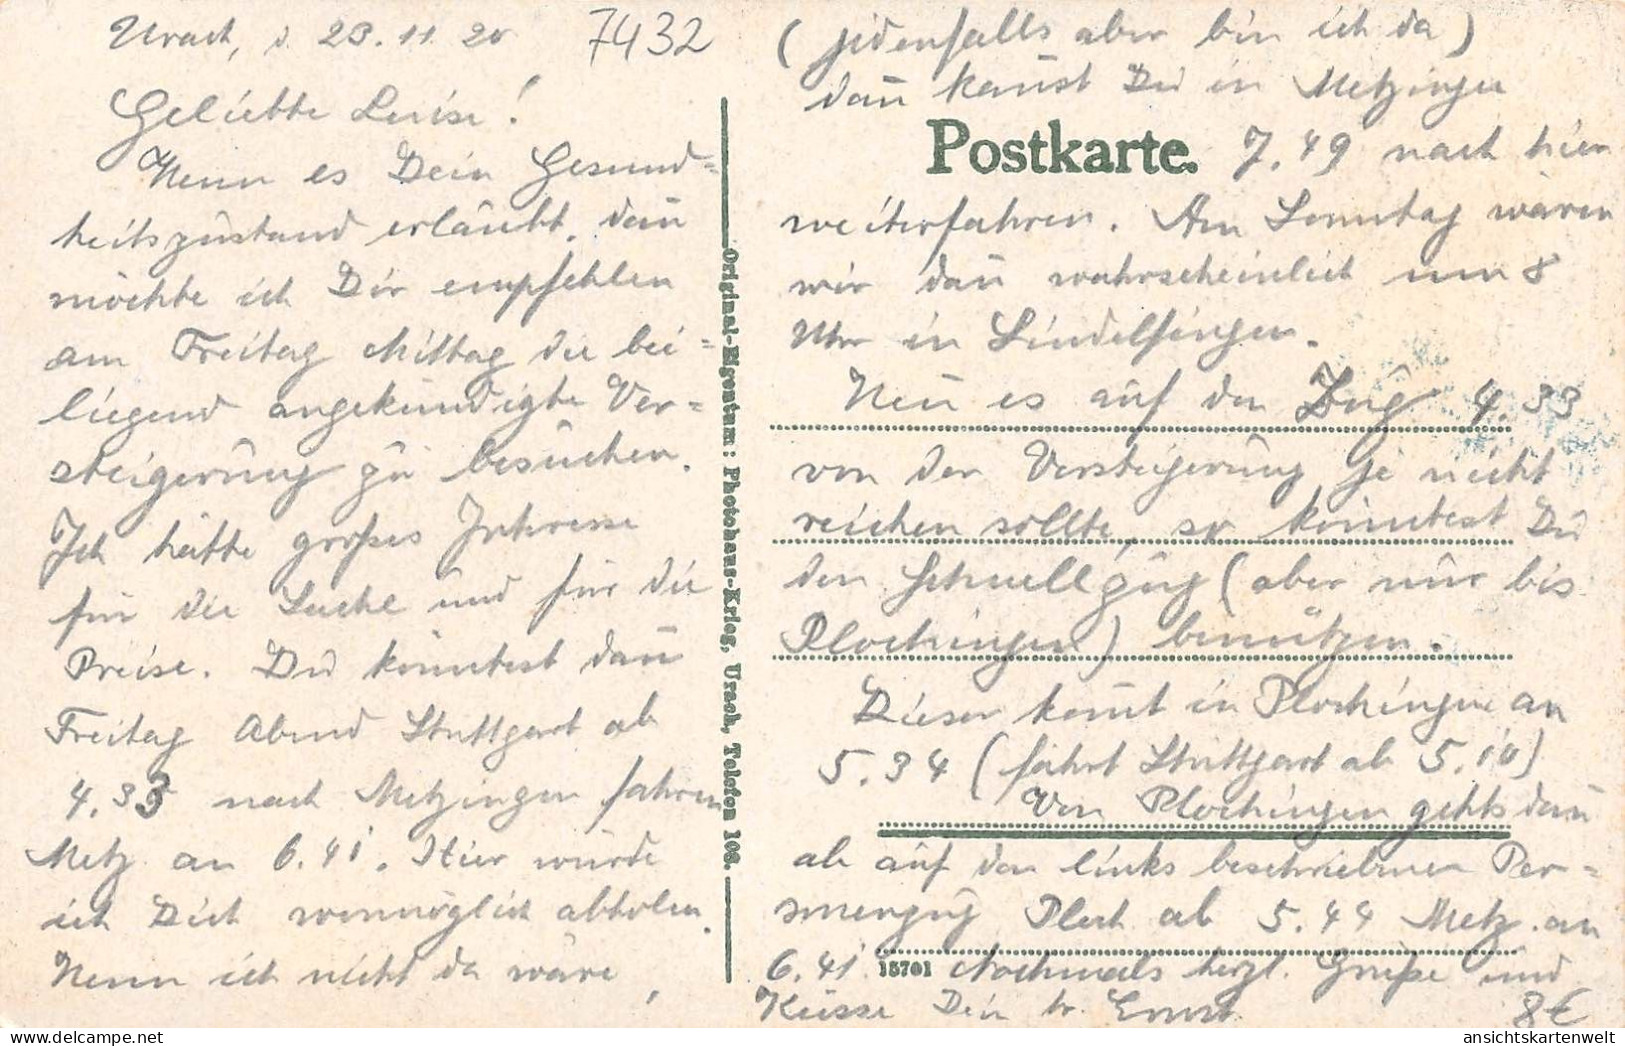 Urach, d. 23.11.20
7432
Geliebte Luise!
Wenn es Dein Gesund=
heitszustand erlaubt, dann
möchte ich Dir empfehlen
am Freitag Mittag die bei=
liegend angekündigte Ver=
steigerung zu besuchen.
Ich hätte großes Interesse
für die Sache und für die
Preise. Du könntest dann
Freitag Abend Stuttgart ab
4.33 nach Metzingen fahren
Metz. an 6.41. Hier würde
ich Dich womöglich abholen.
Wenn ich nicht da wäre,
Original-Eigentum: Photohaus-Krieg, Urach, Telefon 106.
(jedenfalls aber bin ich da)
dann kannst Du in Metzingen
Postkarte.
7.49 nach hier
weiterfahren. Am Sonntag wären
wir dann wahrscheinlich um 8
Uhr in Sindelfingen.
Wenn es auf den Zug 4.33
von der Versteigerung je nicht
reichen sollte, so könntest Du
den Schnellzug (aber nur bis
Plochingen) benützen.
Dieser kommt in Plochingen an
5.34 (fährt Stuttgart ab 5.10)
Von Plochingen gehts dann
ab auf den links beschriebenen Per=
sonenzug Ploch ab 5.44 Metz. an
6.41. Nochmals herzl. Grüße und
15701
Küsse Dein tr. Ernst.
8€
ansichtskartenwelt